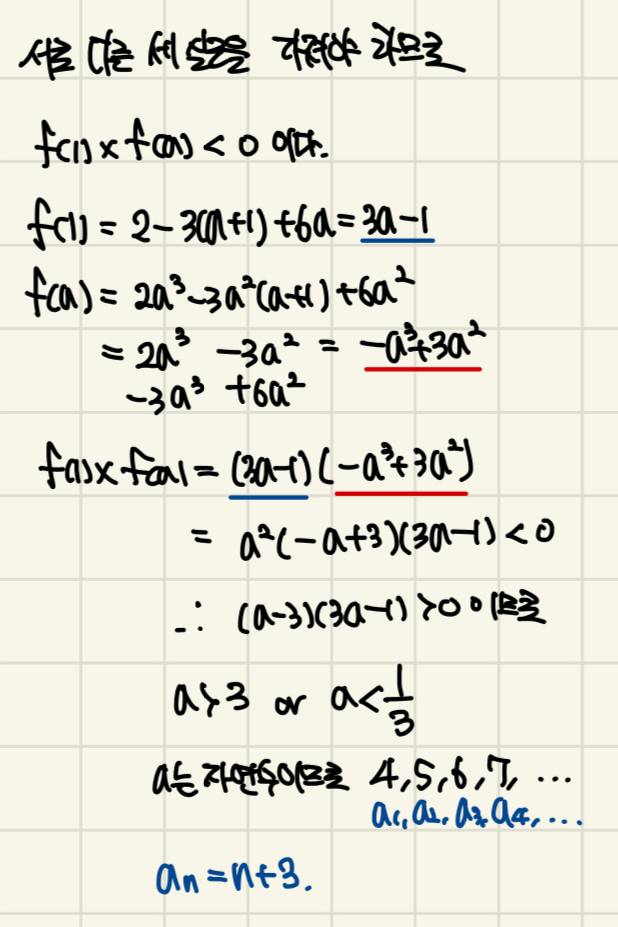 서로 다른 세 실근을 가져야 하므로
f(1)×f(a)<0 이다.
f(1) = 2-3(a+1)+6a = 3a-1
f(a) = 2a³-3a²(a+1)+6a²
= 2a³ -3a² = -a³+3a²
-3a³ +6a²
f(1)×f(a) = (3a-1)(-a³+3a²)
= a²(-a+3)(3a-1)<0
∴ (a-3)(3a-1)>0 이므로
a>3 or a<1/3
a는 자연수이므로 4,5,6,7, ...
a₁, a₂, a₃, a₄, ...
aₙ = n+3.